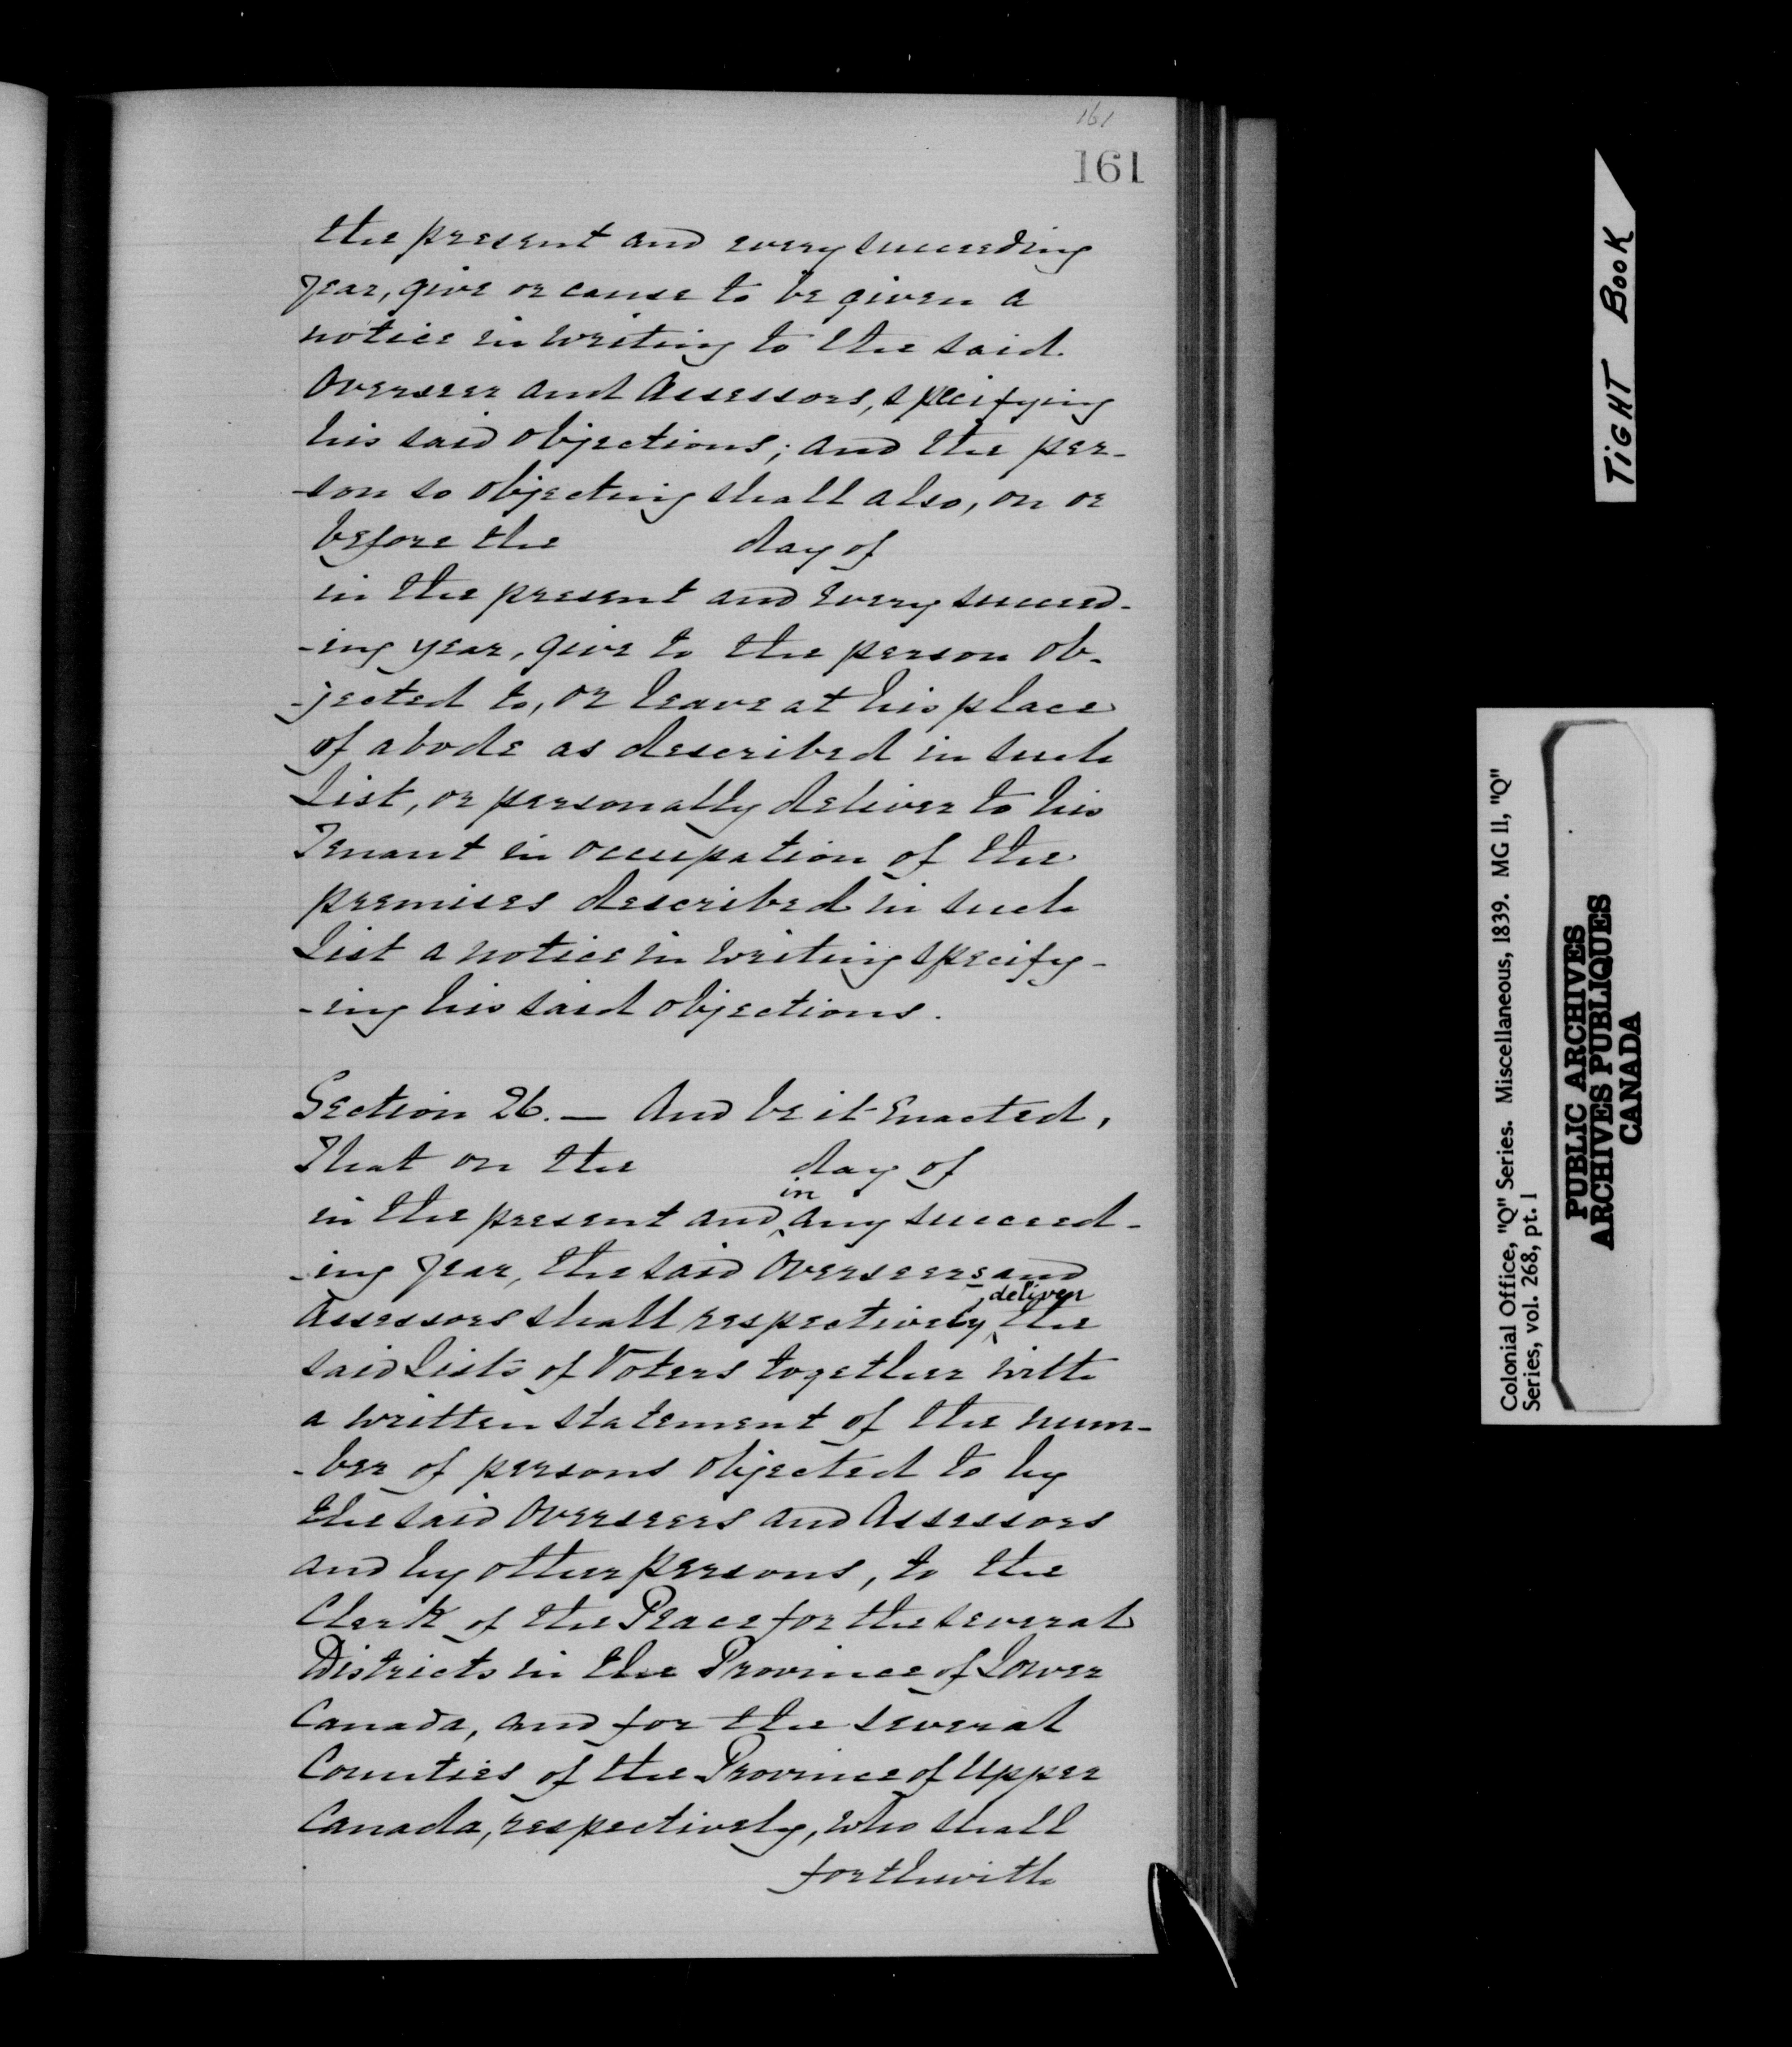 161
161
the present and every succeeding
year, give or cause to be given a
notice in writing to the said
Overseer and Assessors, specifying
his said objections; and the per-
-son so objecting shall also, on or
before the day of
in the present and every succeed-
-ing year, give to the person ob-
-jected to, or leave at his place
of abode as described in such
List, or personally deliver to his
Tenant in occupation of the
premises described in such
List a notice in writing specify-
-ing his said objections.
Section 26. — And be it Enacted,
That on the day of
in the present and in any succeed-
-ing year, the said Overseers and
Assessors shall respectively, deliver the
said Lists of Voters together with
a written statement of the num-
-ber of persons objected to by
the said Overseers and Assessors
and by other persons, to the
Clerk of the Peace for the several
Districts in the Province of Lower
Canada, and for the several
Counties of the Province of Upper
Canada, respectively, who shall
forthwith
TIGHT BOOK
Colonial Office, "Q" Series. Miscellaneous, 1839. MG 11, "Q"
Series, vol. 268, pt. 1
PUBLIC ARCHIVES
ARCHIVES PUBLIQUES
CANADA